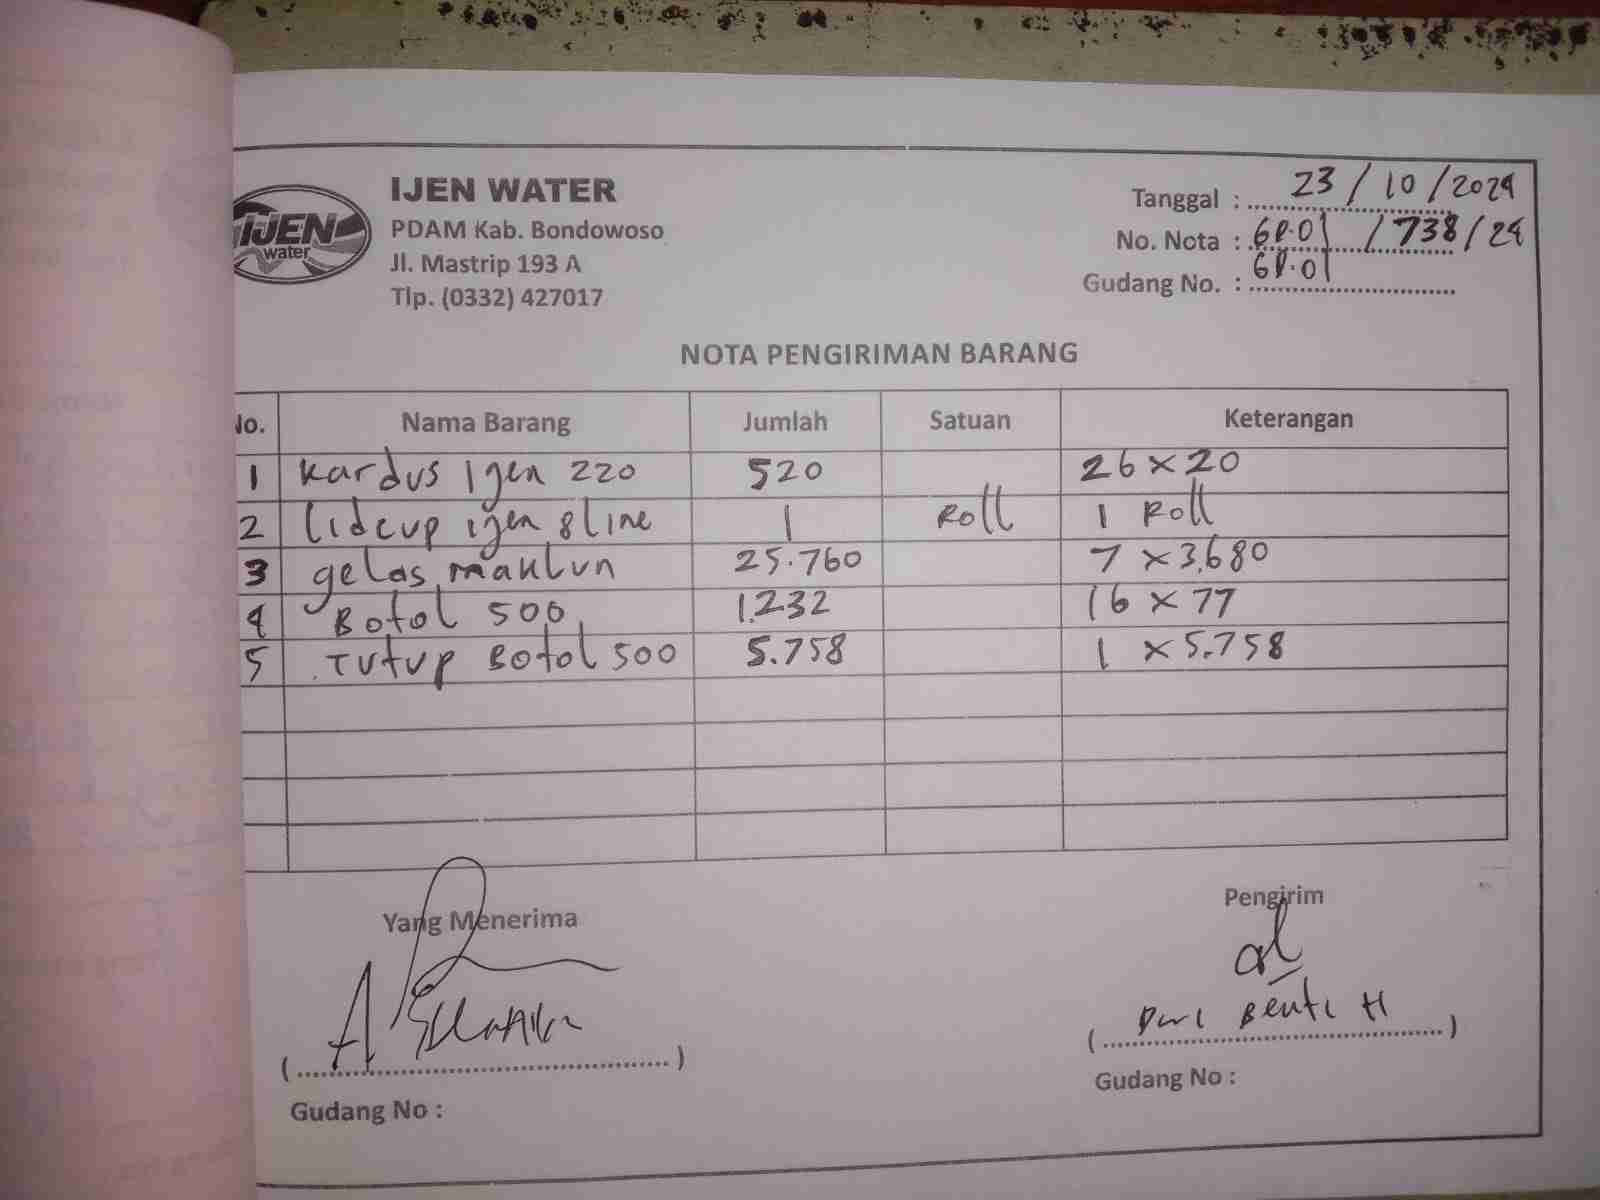 IJEN WATER
PDAM Kab. Bondowoso
Jl. Mastrip 193 A
Tlp. (0332) 427017
IJEN
water
Tanggal : 23 / 10 / 2024
No. Nota : GP.01 / 738 / 24
Gudang No. : GP.01
NOTA PENGIRIMAN BARANG
No. Nama Barang Jumlah Satuan Keterangan
1 Kardus Ijen 220 520 26 x 20
2 Lidcup ijen 8 line 1 Roll 1 Roll
3 gelas maklun 25.760 7 x 3.680
4 Botol 500 1.232 16 x 77
5 Tutup Botol 500 5.758 1 x 5.758
Yang Menerima Pengirim
( ) ( H )
Gudang No : Gudang No :